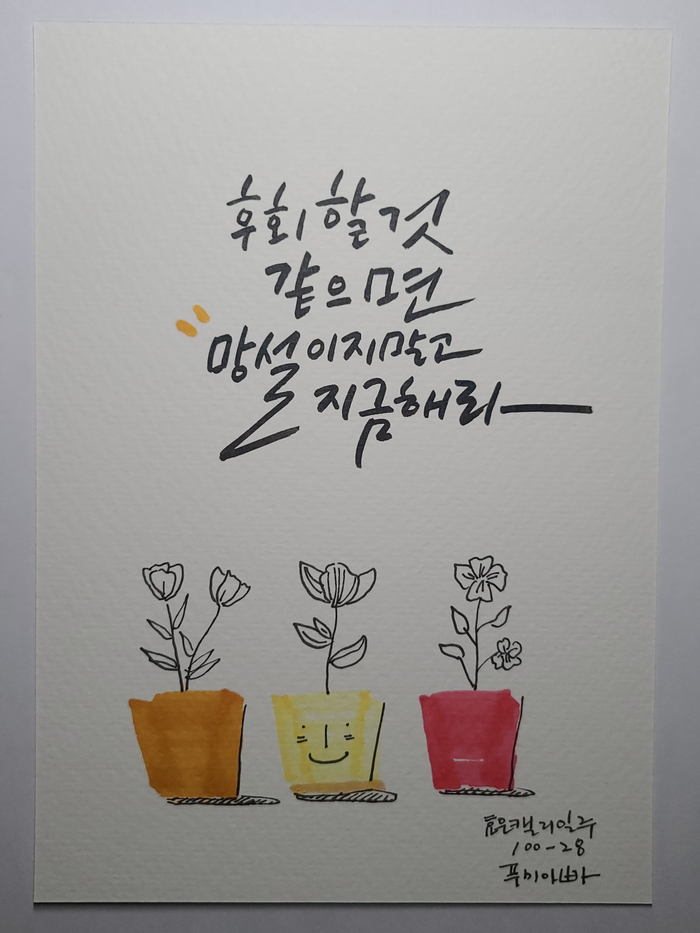 후회할것
같으면
망설이지말고
지금해라
캘리일주
100-28
푸미아빠